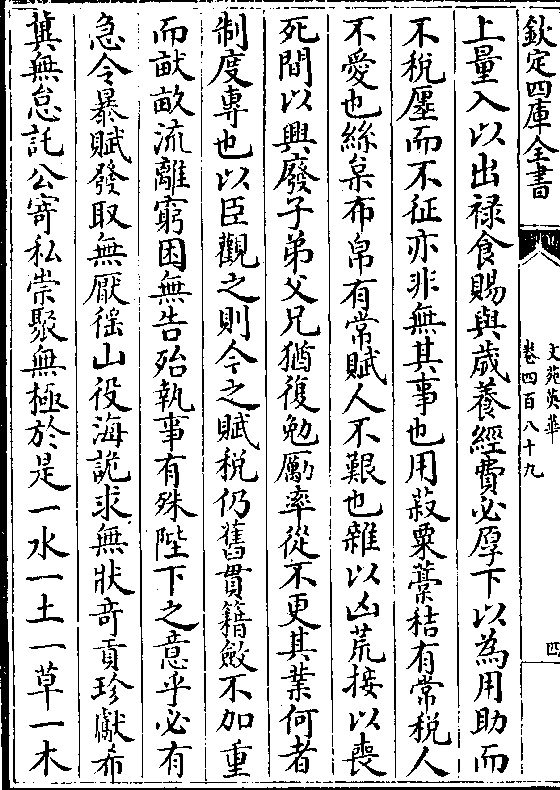 欽定四庫全書
文苑英華
卷四百八十九
四
上量入以出禄食賜與歳養經費必厚下以為用助而
不税廛而不征亦非無其事也用菽粟藁秸有常税人
不愛也絲枲布帛有常賦人不艱也雖以凶荒接以喪
死間以興廢子弟父兄猶復勉勵率從不更其業何者
制度専也以臣觀之則今之賦税仍舊貫籍斂不加重
而畎畝流離窮困無告殆執事有殊陛下之意乎必有
急令暴賦發取無厭徭山役海詭求無狀竒貢珍獻希
兾無怠託公寄私崇聚無極於是一水一土一草一木